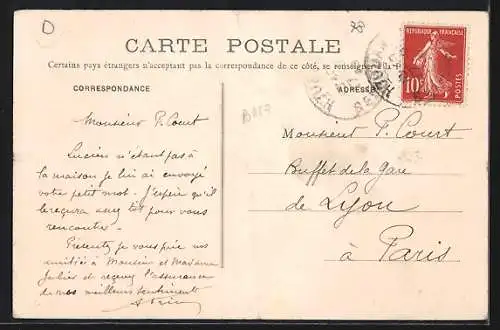 CARTE POSTALE
Certains pays étrangers n'acceptant pas la correspondance de ce côté, se renseigner à la
CORRESPONDANCE
ADRESSE
RÉPUBLIQUE FRANÇAISE
10c
POSTES
Monsieur P. Court
Lucien n'étant pas à
la maison je lui ai envoyé
votre petit mot. J'espère qu'il
le reçevra assez tôt pour vous
rencontrer.
Présentez je vous prie nos
amitiés à Monsieur et Madame
Julien et recevez l'assurance
de nos meilleurs sentiments
Monsieur P. Court
Buffet de la Gare
de Lyon
à Paris